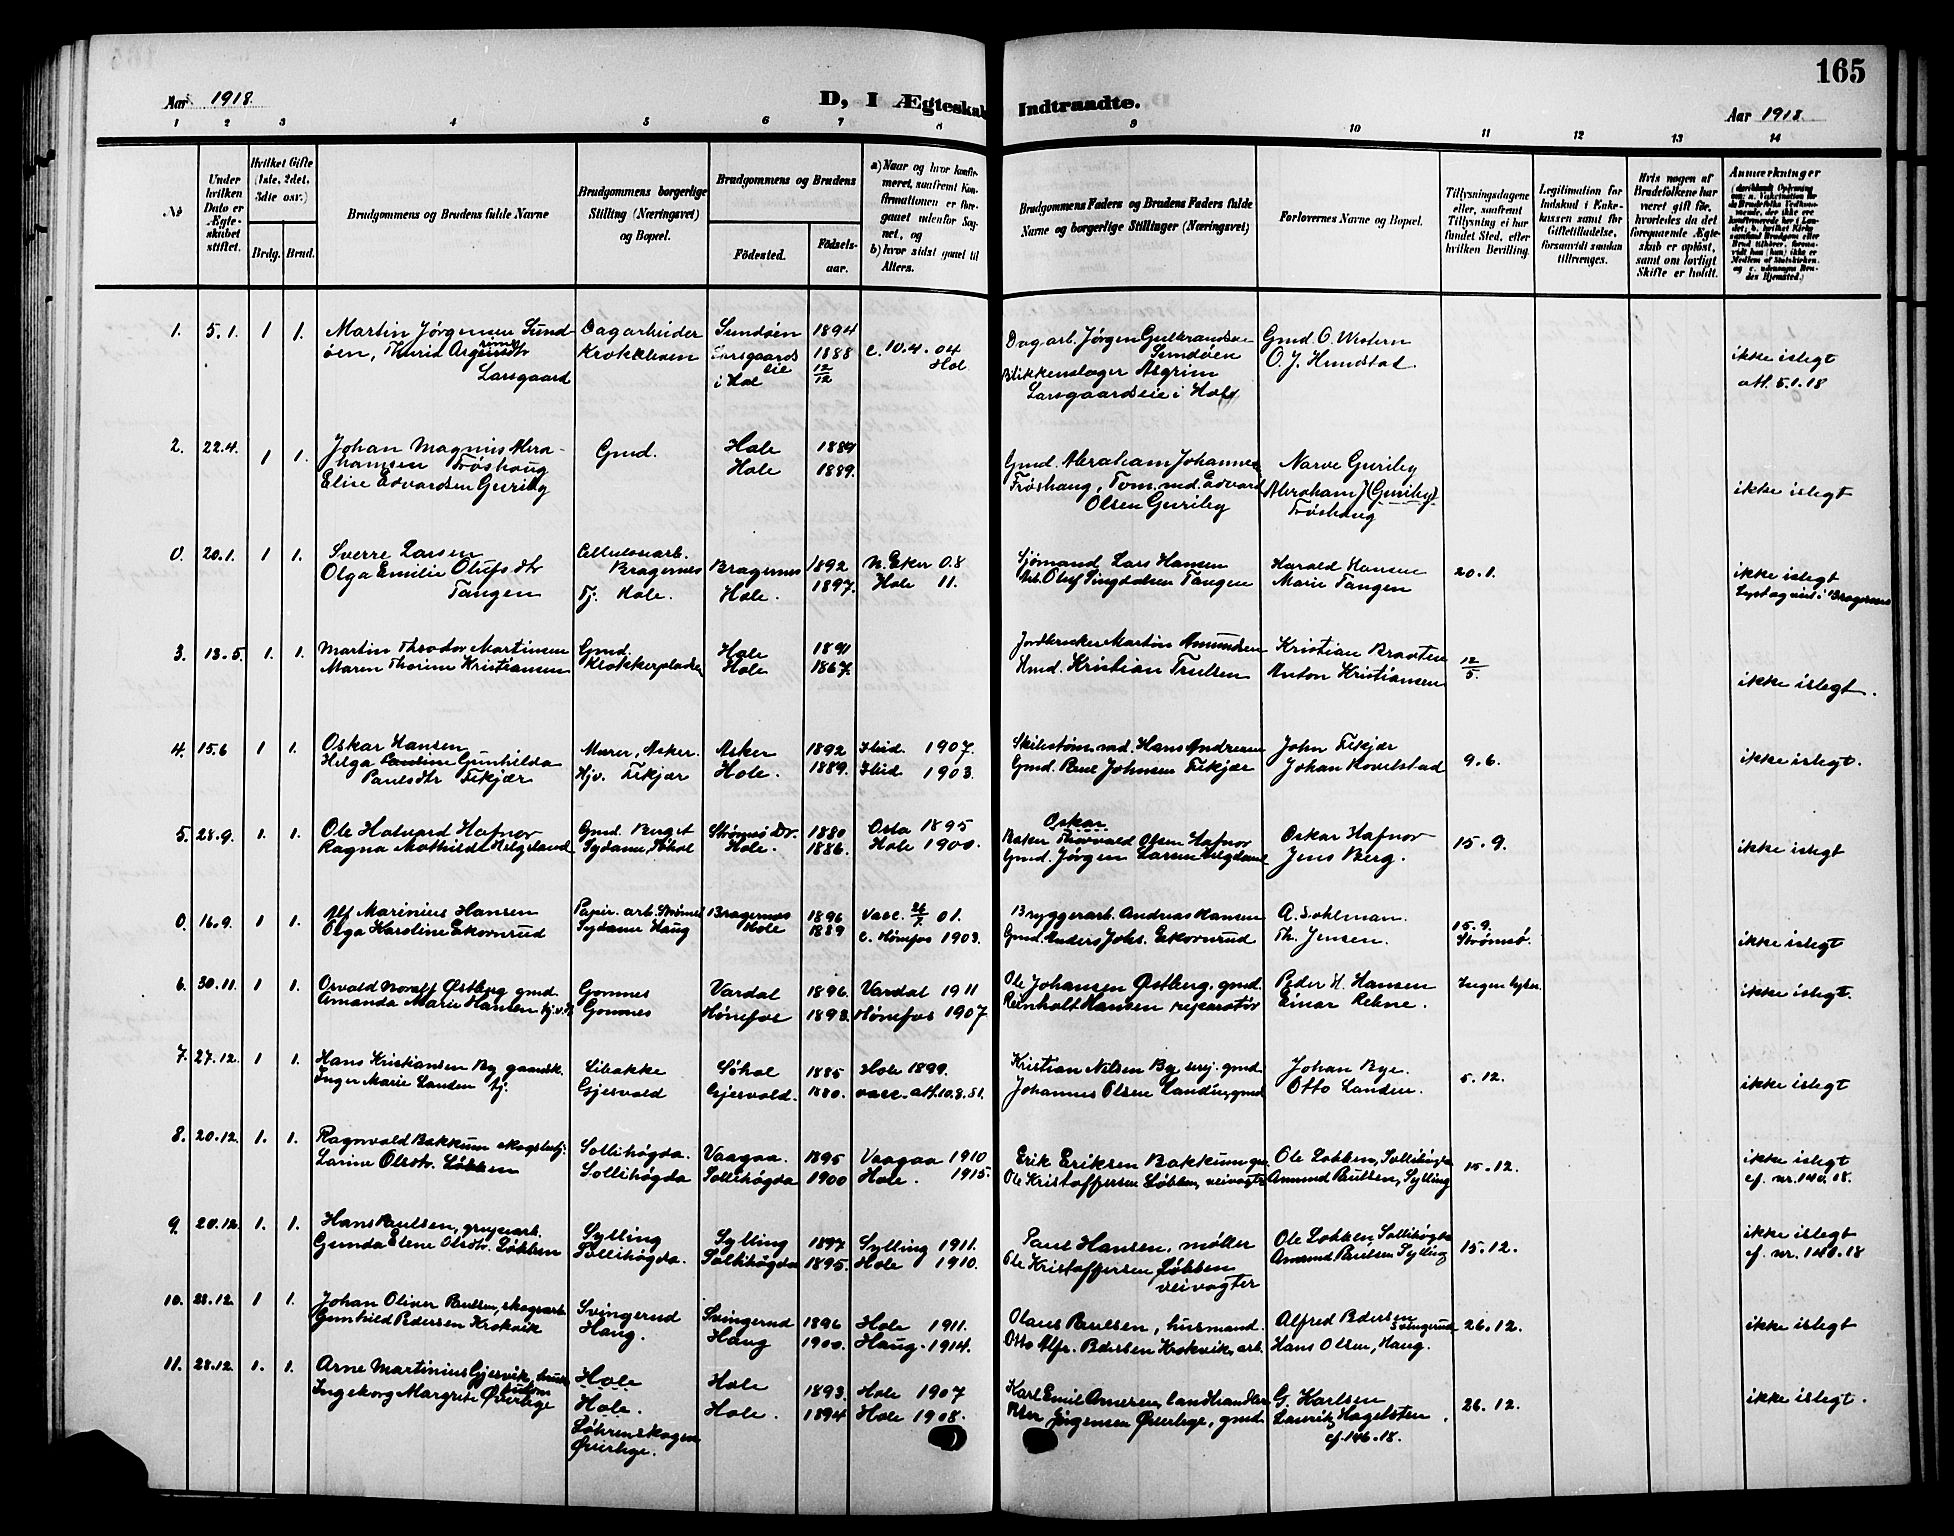 165
Aar 1918.
D, I Ægteskab
Indtraadte.
Aar 1918.
1 2 3 4 5 6 7 8 9 10 11 12 13 14
No
Under hvilken Dato er Ægteskabet stiftet.
Hvilket Gifte (1ste, 2det, 3die osv.)
Brdg. Brud.
Brudgommens og Brudens fulde Navne
Brudgommens borgerlige Stilling (Næringsvei) og Bopæl.
Brudgommens og Brudens
Fødested.
Fødsels-aar.
a) Naar og hvor konfirmeret, samt om Konfirmationen er foregaaet udenfor Sognet, og
b) hvor sidst gaaet til Alters.
Brudgommens Faders og Brudens Faders fulde Navne og borgerlige Stillinger (Næringsvei)
Forlovernes Navne og Bopæl.
Tillysningsdagene eller, saafremt Tillysning ei har fundet Sted, efter hvilken Bevilling.
Legitimation for Indskud i Enkekassen samt for Giftetilladelse, forsaavidt saadan tiltrænges.
Hvis nogen af Brudefolkene har været gift før, hvorledes da det foregaaende Ægteskab er opløst, samt om lovligt Skifte er holdt.
Anmærkninger
1. 5.1. 1 1. Martin Jørgensen Sund Dagarbeider Sundøen 1894 Dagarb. Jørgen Gulbrandsen Gmd. O. Western
øen, Thurid Asgrimsdtr Krokkleven Larsgaards 1888 c. 10.4.04 Sundøen O. J. Hundstad. ikke islegt
Larsgaard eie i Hol 12/12 Hol Blikkenslager Asgrim att. 5.1.18
Larsgaardseie i Hol
2. 22.4. 1 1. Johan Magnus Abra- Gmd. Hole 1884
hamsen Frøshaug Hole 1889. Gmd. Abraham Johannes Narve Guriby
Elise Edvardsen Guriby Frøshaug, Tom.md. Edvard Abraham J (Guriby) ikke islegt
Olsen Guriby Frøshaug
0. 20.1. 1 1. Sverre Larsen Cellulosearb. Bragernes 1892 N. Eker 08 Sjømand Lars Hansen Harald Hansen 20.1. ikke islegt
Olga Emilie Olufsdtr Bragernes Hole. 1897. Hole 11. Arb. Oluf Tangen Marie Tangen
Tangen Tj. Hole. Lyst og viet i Bragernes
3. 18.5. 1. 1. Martin Theodor Martinsen Gmd. Hole 1891 Jordbruker Martin Amundsen Kristian Braaten 12/5.
Maren Thorine Kristiansen Klokkerpladsen Hole 1867. Hmd. Kristian Trulsen Anton Kristiansen ikke islegt.
4. 15.6 1 1. Oskar Hansen Murer, Asker. Asker 1892 Ibid. 1907. Skibstøm.md. Hans Andresen John Fekjær 9.6. ikke islegt.
Helga Pauline Gunhilda Hjv. Fekjær Hole. 1889. Ibid 1903. Gmd. Paul Johnsen Fekjær Johan Kovelstad
Paulsdtr Fekjær
5. 28.9. 1. 1. Ole Halvard Hafnor Gmd. Berget Strømsø Dr. 1880 Osla 1895 Oskar Oskar Hafnor 15.9. ikke islegt
Ragna Mathilde Helgeland Sydame, Søhol Hole. 1886. Hole 1900. Baker Thorvald Olsen Hafnor Jens Berg.
Gmd. Jørgen Larsen Helgeland
0. 16.9. 1 1. Alf Marinius Hansen Papir. arb. Strømsø Bragernes 1896 Vacc. 26/7. 01. Bryggerarb. Andreas Hansen A. Sohlman. 15.9.
Olga Karoline Ekornrud Sydame Haug Hole 1889 c. Hønefos 1903. Gmd. Anders Johs. Ekornrud Th. Jensen. Strømsø. ikke islegt
6. 30.11. 1 1. Osvald Noralf Østberg gmd. Gomnes Vardal 1896. Vardal 1911 Ole Johansen Østberg, gmd. Peder H. Hansen Ingen lysn. ikke islegt.
Amanda Marie Hansen Gomnes Hønefos 1893. Hønefos 1907. Reinholt Hansen reparatør Einar Rehne.
7. 27.12. 1 1. Hans Kristiansen By gaardsk. Libakke Søhol 1885 Hole 1899. Kristian Nilsen By gmd. Johan Bye. 5.12. ikke islegt
Inger Marie Landen tj. Gjesvold Gjesvold. 1880. vacc. att. 10.8.81. Johannes Olsen Landen, gmd Otto Landen.
8. 20.12. 1. 1. Ragnvald Bakkum skogsarb. Sollihøgda. Vaagaa. 1895 Vaagaa 1910 Erik Eriksen Bakkum Ole Løkken, Sollihøgda 15.12. ikke islegt
Larine Olsdtr. Løkken Sollihøgda Sollihøgda 1900 Hole. 1915. Ole Kristoffersen Løkken, veivogter Amund Paulsen, Sylling cf. nr. 140.18.
9. 20.12. 1. 1. Hans Paulsen, grubearb. Sylling Sylling 1897 Sylling 1911. Paul Hansen, møller Ole Løkken, Sollihøgda 15.12. ikke islegt
Gunda Elene Olsdtr. Løkken Sollihøgda. Sollihøgda 1895. Hole 1910. Ole Kristoffersen Løkken Amund Paulsen Sylling cf. nr. 140.18
veivogter
10. 28.12. 1 1. Johan Oliver Paulsen, skogsarb. Svingerud Svingerud 1896 Hole 1911. Olaus Paulsen, husmand. Alfred Pedersen Svingerud 26.12. ikke islegt
Gunhild Pedersen Krokvik Haug. Haug 1900. Haug. 1914. Otto Alfr. Pedersen Krokvik, arb. Hans Olsen, Haug.
11. 28.12. 1. 1. Arne Martinius Gjesvik, Hole Hole 1893. Hole 1907 Karl Emil Arnesen, landhandler G. Karlsen 26.12. ikke islegt.
Ingeborg Margrete Øverlege Hole. Hole. 1894 Hole 1908. Peter Jørgensen Øverlege, gmd. Lauritz Hagelsten
Løkrenskogen cf. 146.18.
Øverlege.